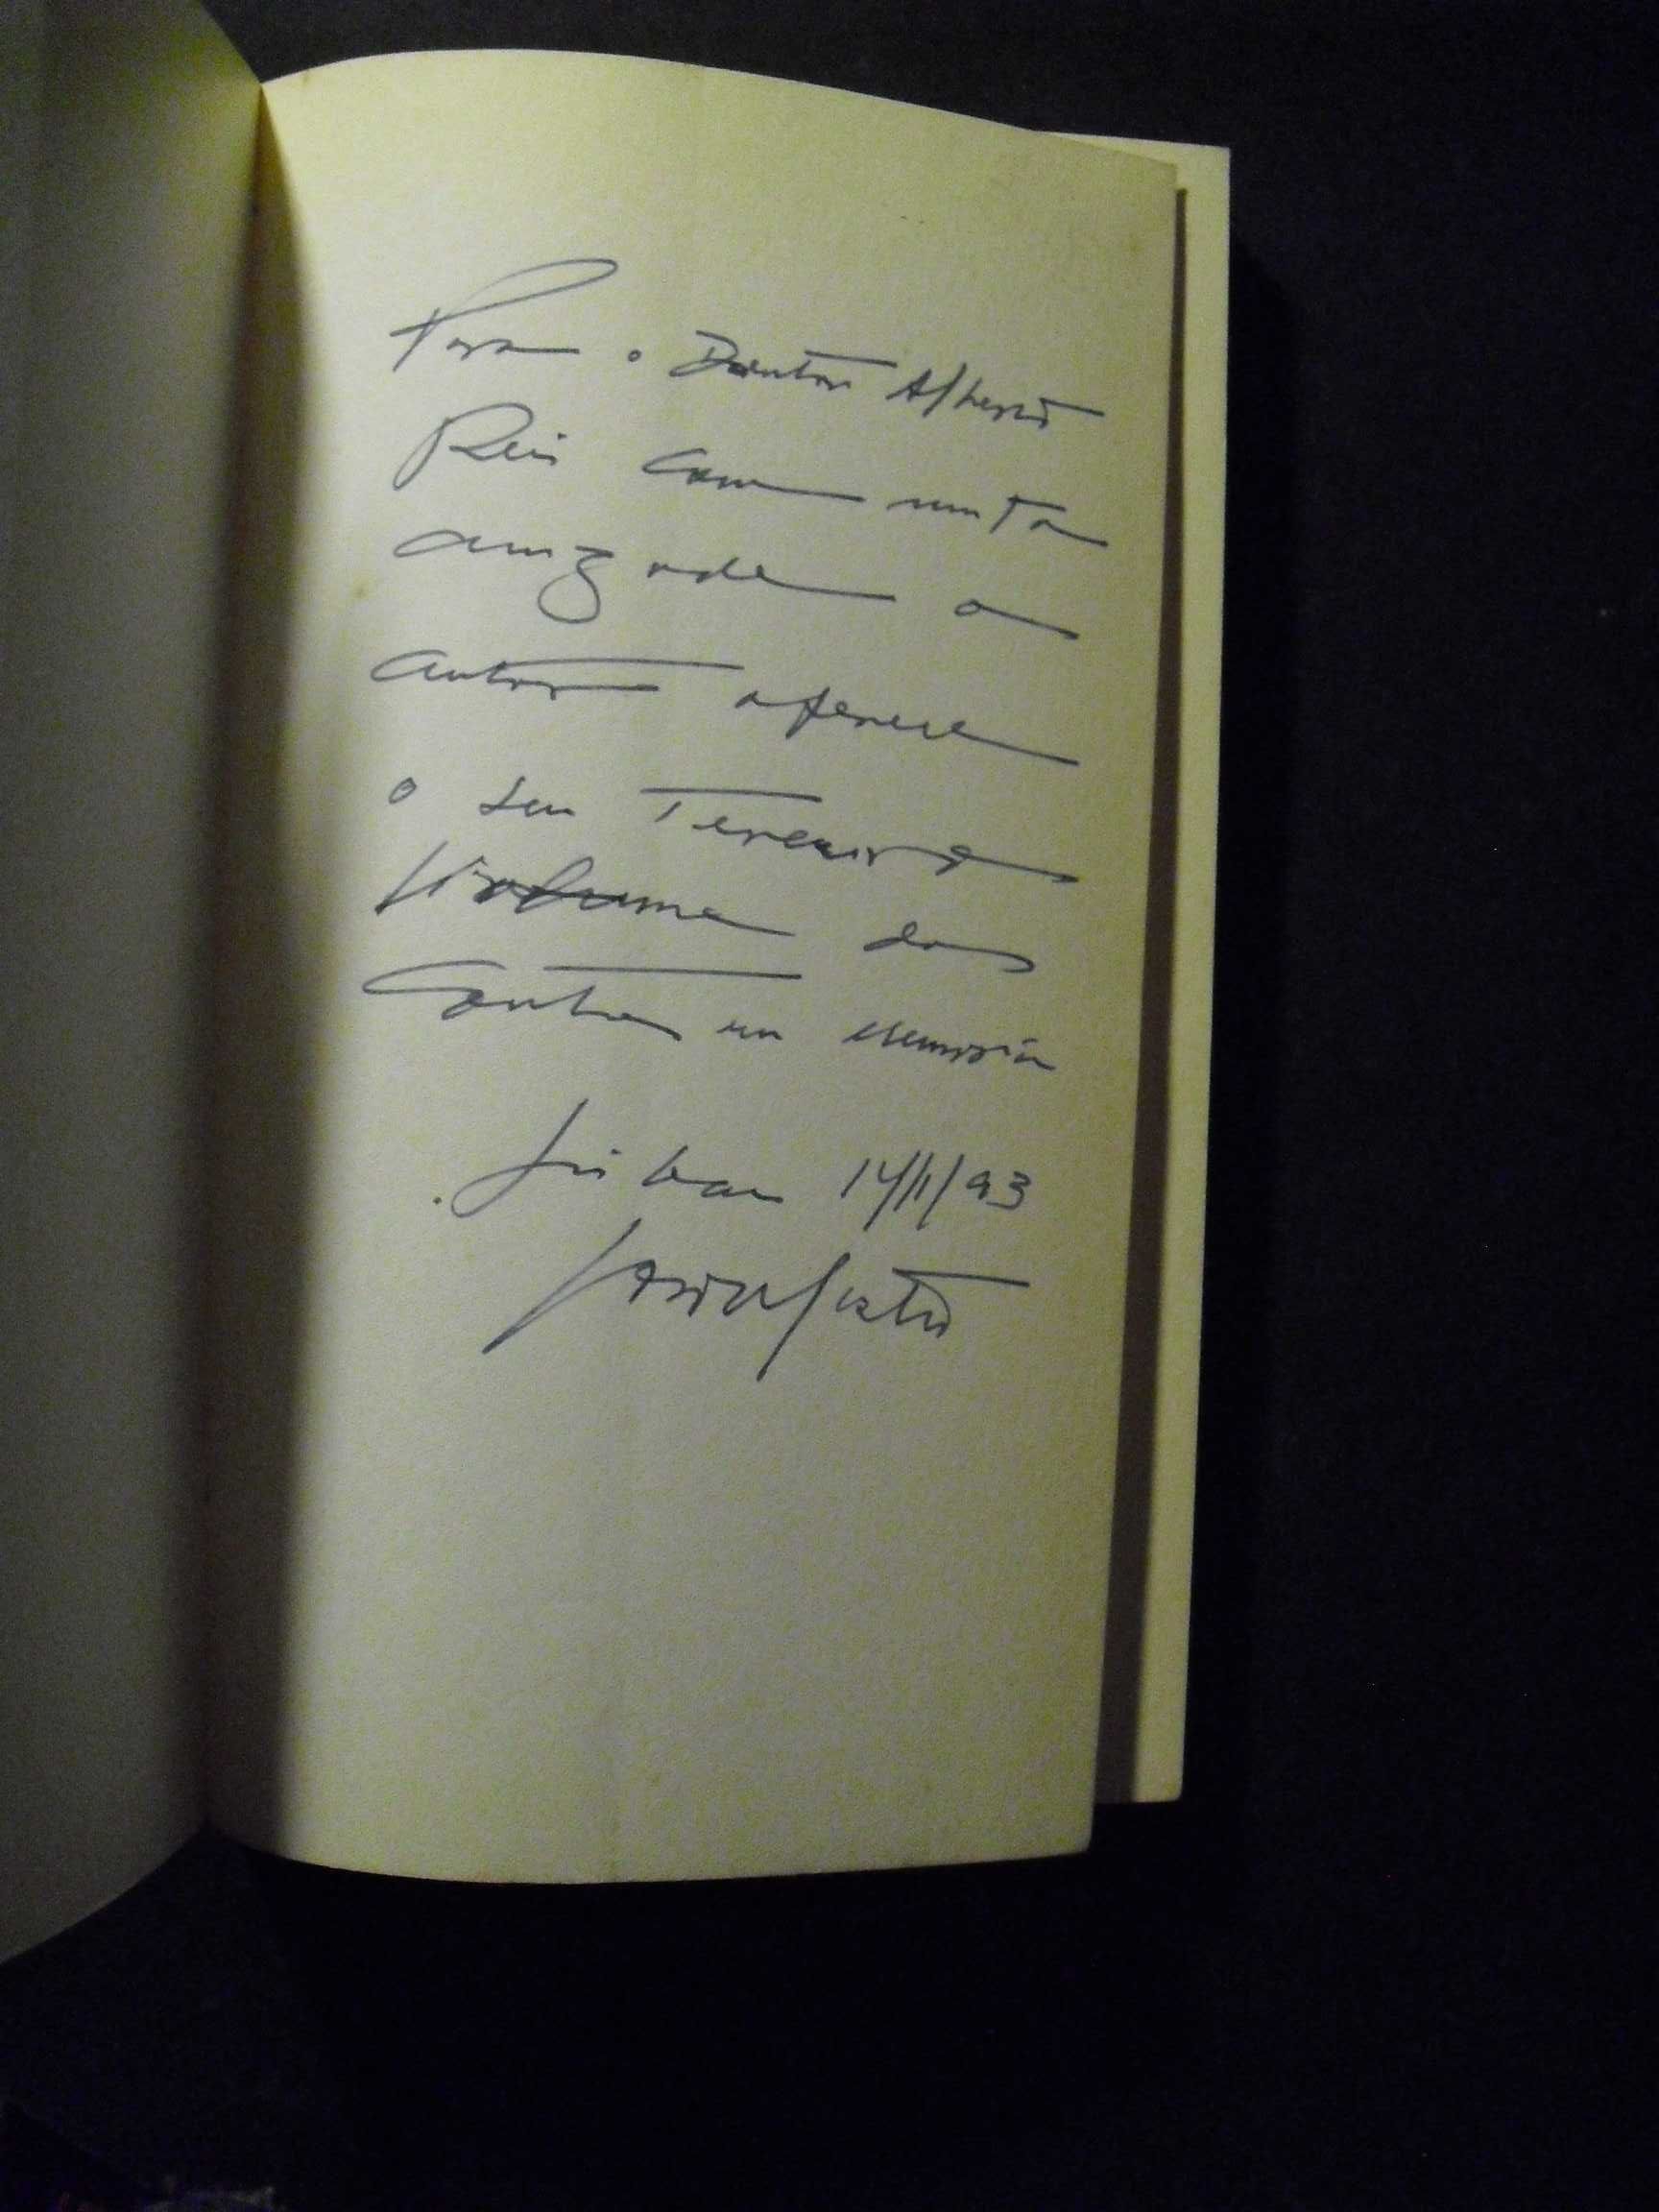 Para o Doutor Alberto
Reis com muita
amizade o
autor oferece
o seu Terceiro
Volume dos
Contos
Lisboa 14/11/93